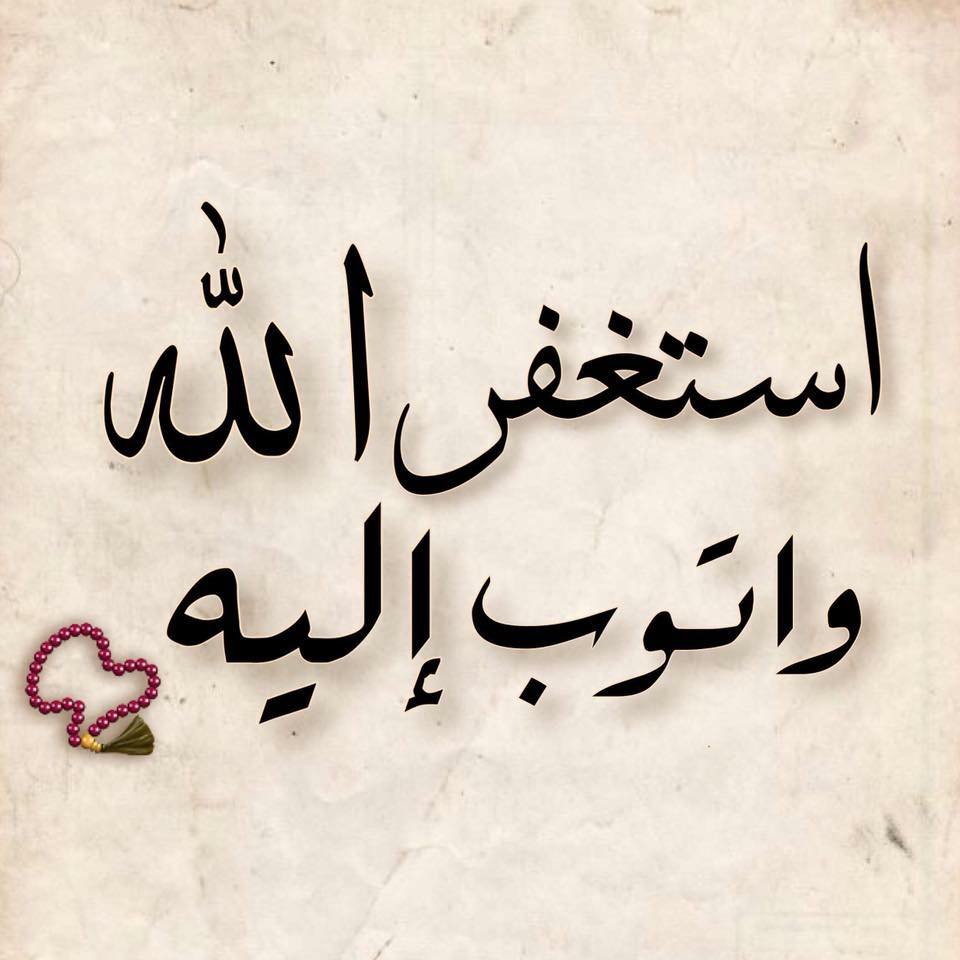 استغفر الله
واتوب إليه